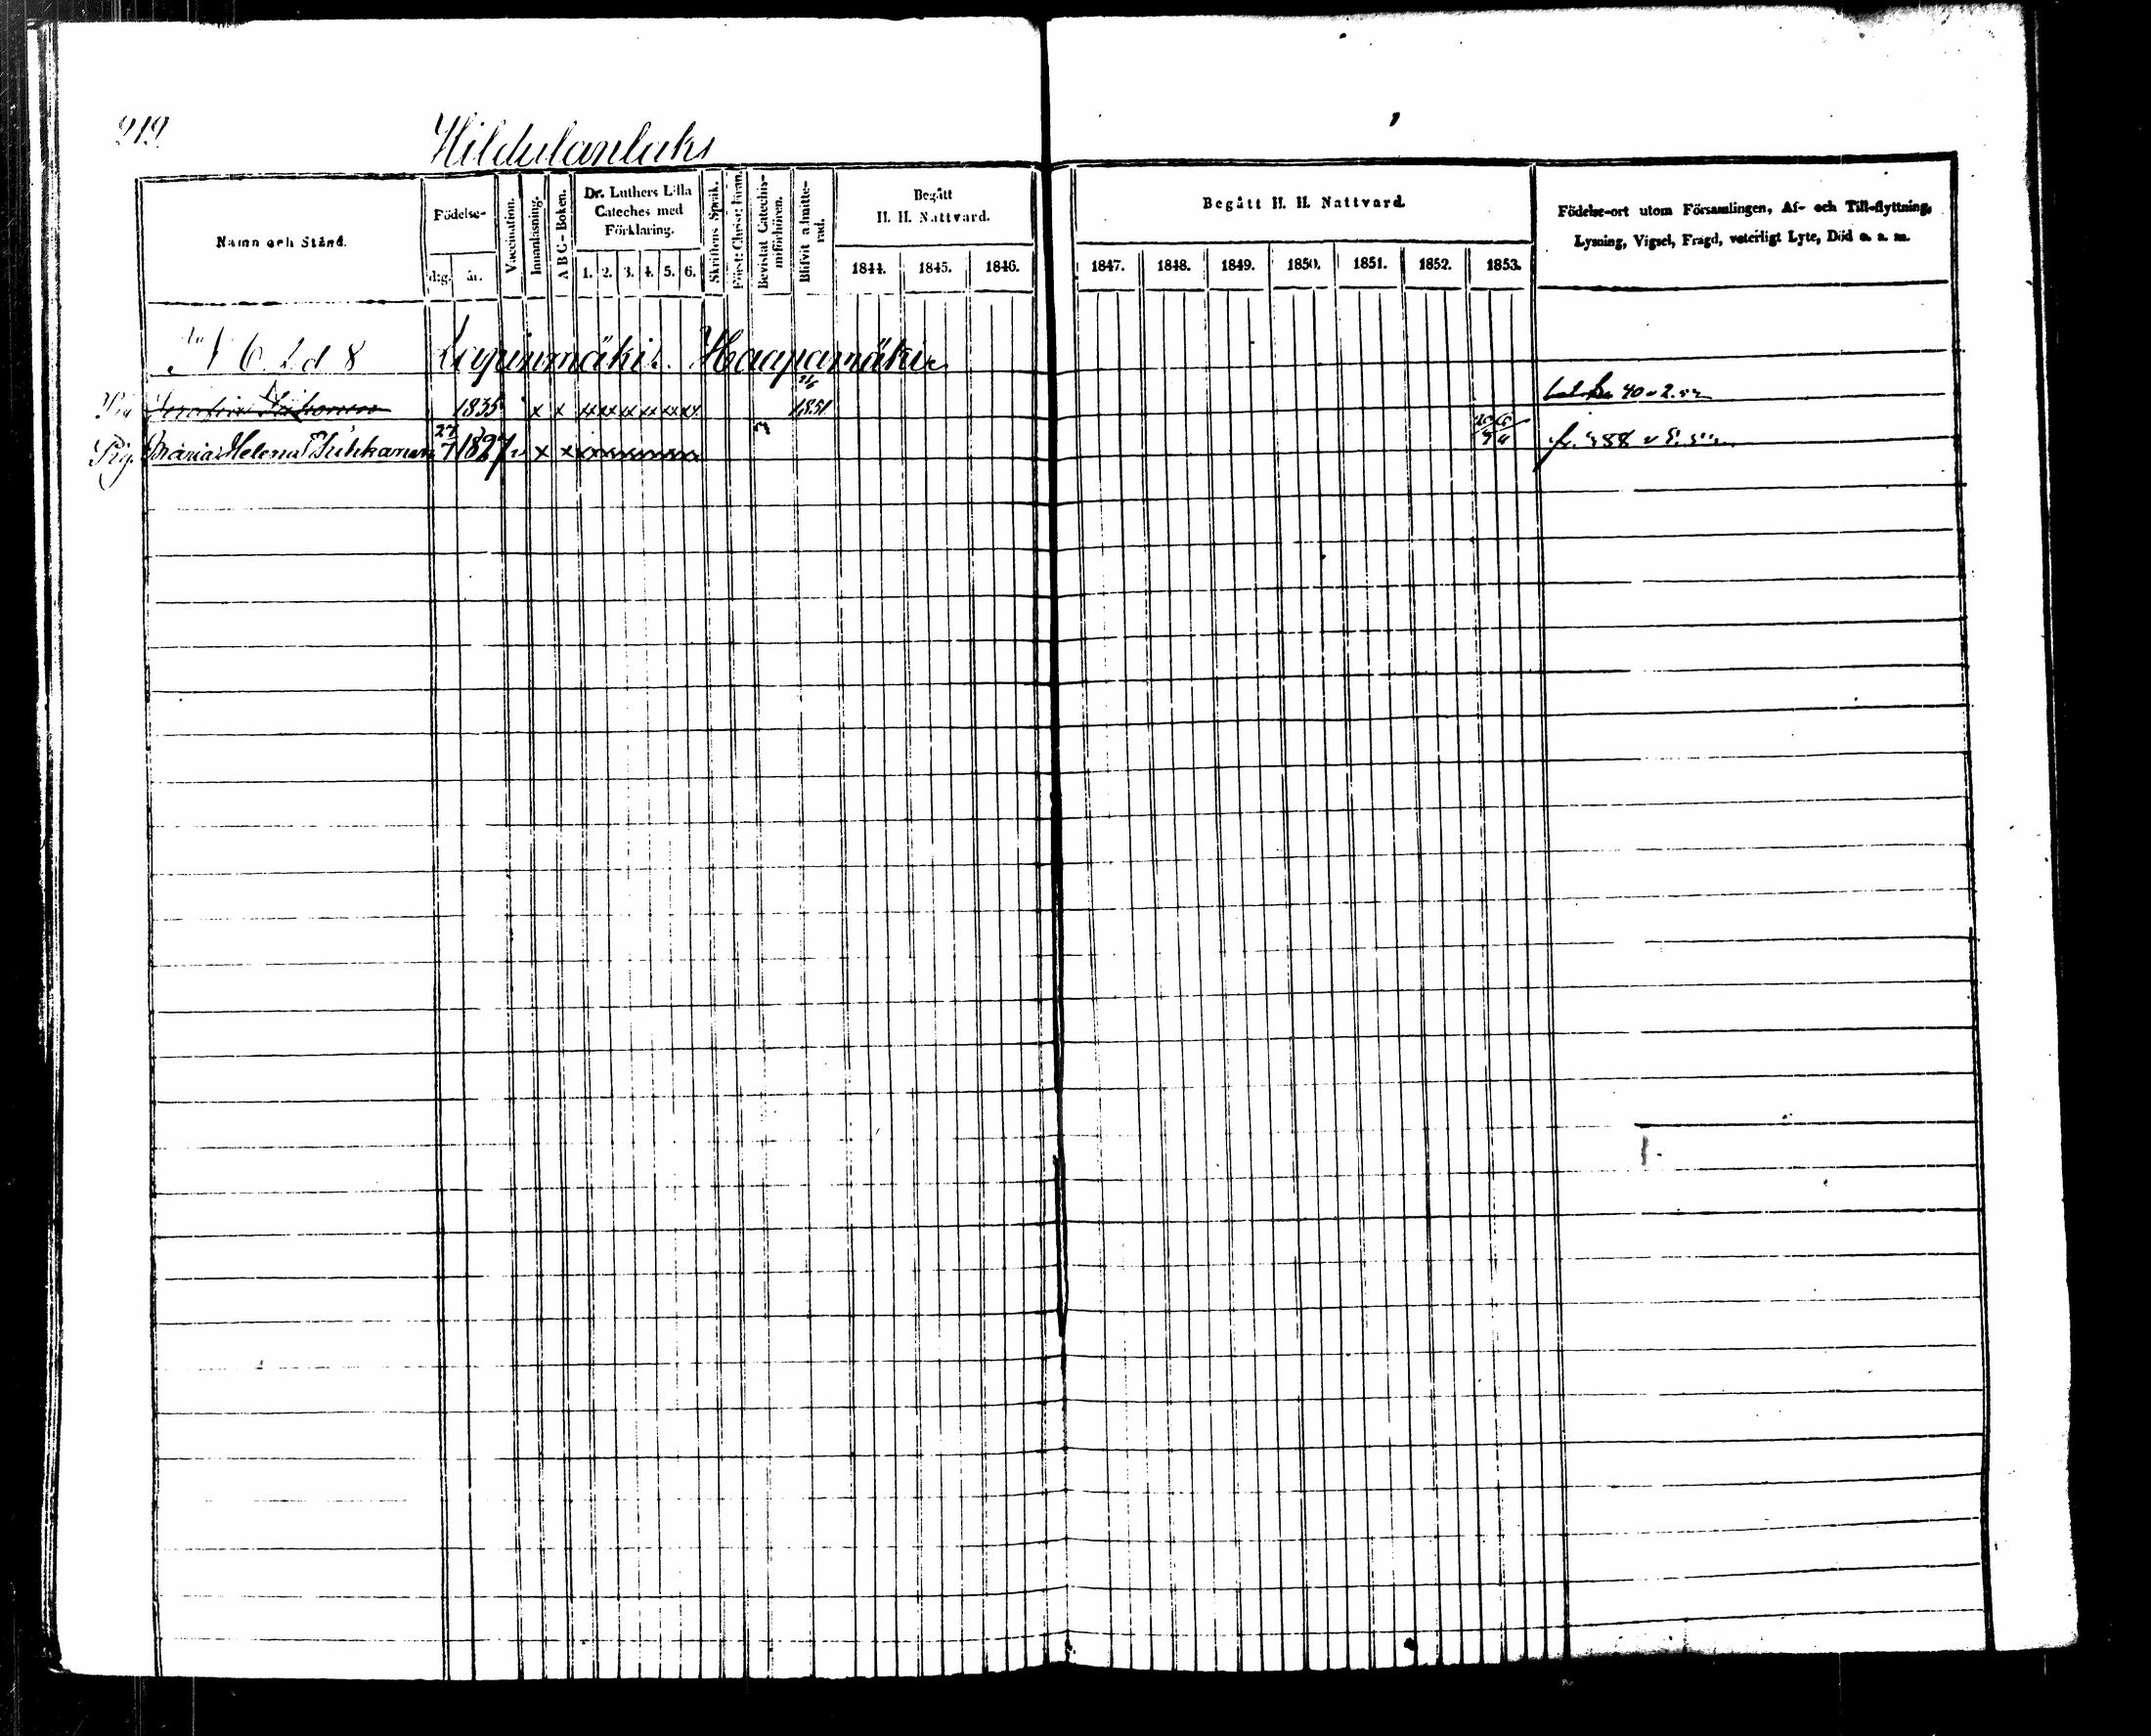 919
Hildulanlaks
Namn och Stånd.
Födelse-
dag. år.
Vaccination.
Innanläsning.
A B C-Boken.
Dr. Luthers Lilla
Cateches med
Förklaring.
1. 2. 3. 4. 5. 6.
Skriftens Språk.
Bevistat Catechis-
miförhören.
Blifvit admitte-
rad.
Begått
H. H. Nattvard.
1844. 1845. 1846.
Begått H. H. Nattvard.
1847. 1848. 1849. 1850. 1851. 1852. 1853.
Födelse-ort utom Församlingen, Af- och Till-flyttning,
Lysning, Vigsel, Frägd, veterligt Lyte, Död o. s. m.
N 6 Ld 8 Lapinmäki Haapamäki
1835 x x xx xx xx xx xx xx 1851 40
Pig. Maria Helena 27/7 1827 x x 588